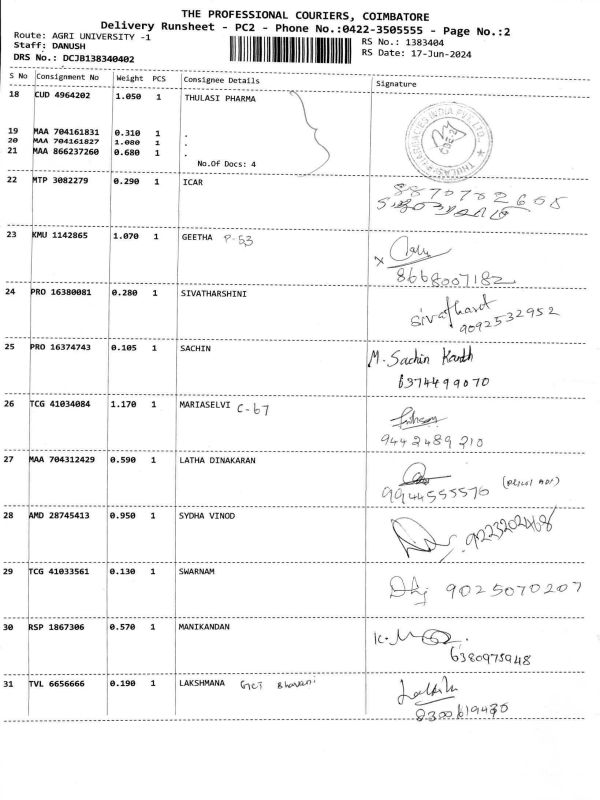 THE PROFESSIONAL COURIERS, COIMBATORE
Delivery Runsheet - PC2 - Phone No.:0422-3505555 - Page No.:2
Route: AGRI UNIVERSITY -1
RS No.: 1383404
Staff: DANUSH
RS Date: 17-Jun-2024
DRS No.: DCJB138340402
S No Consignment No Weight PCS Consignee Details Signature
18 CUD 4964202 1.050 1 THULASI PHARMA
19 MAA 704161831 0.310 1 .
20 MAA 704161827 1.080 1 .
21 MAA 866237260 0.680 1 .
No.Of Docs: 4
22 MTP 3082279 0.290 1 ICAR
23 KMU 1142865 1.070 1 GEETHA P-53
x
8668007182
24 PRO 16380081 0.280 1 SIVATHARSHINI
9092532952
25 PRO 16374743 0.105 1 SACHIN
M. Sachin
6374499070
26 TCG 41034084 1.170 1 MARIASELVI C-67
9442489210
27 MAA 704312429 0.590 1 LATHA DINAKARAN
9944555576
28 AMD 28745413 0.950 1 SYDHA VINOD
29 TCG 41033561 0.130 1 SWARNAM
9025070207
30 RSP 1867306 0.570 1 MANIKANDAN
6380975948
31 TVL 6656666 0.190 1 LAKSHMANA